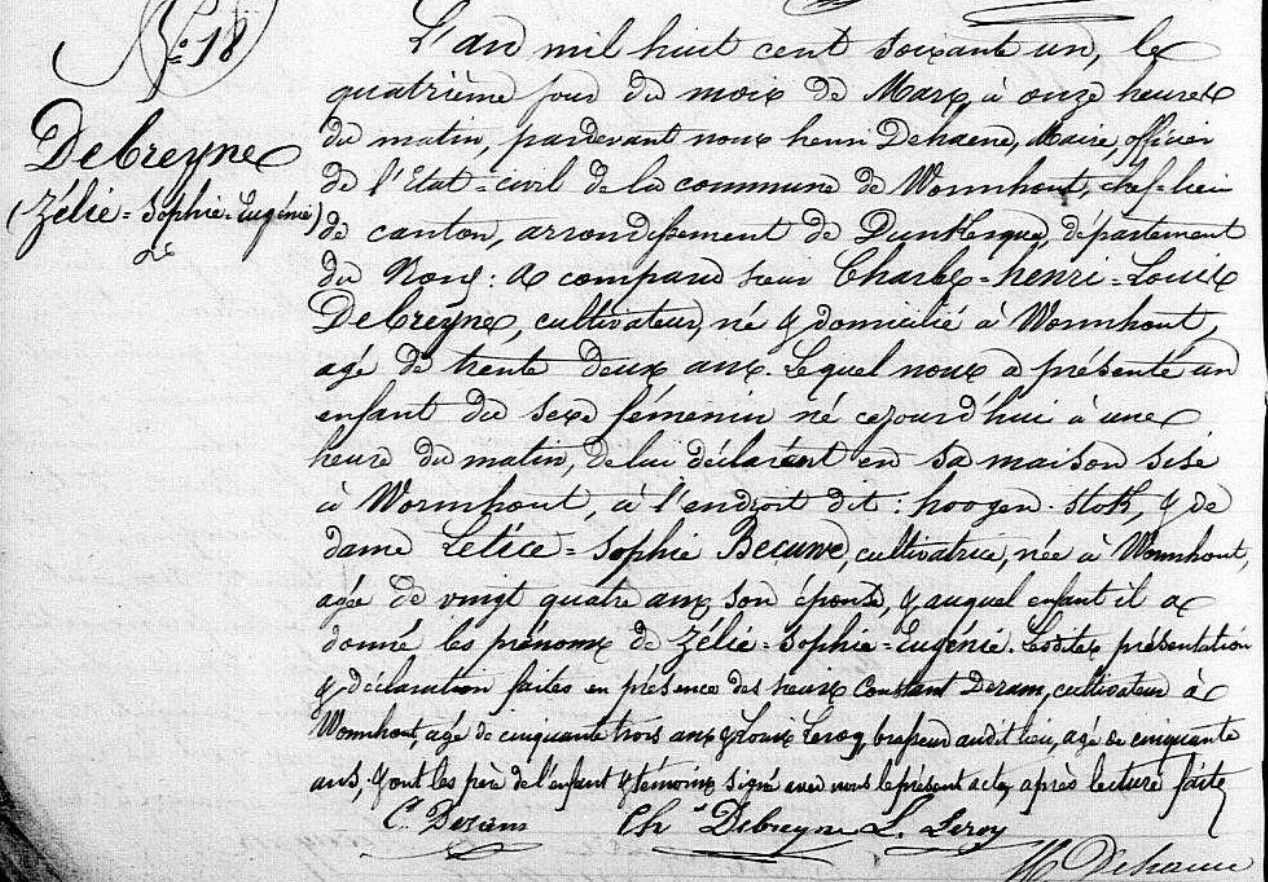 N° 18
Debreyne
(Zélie=Sophie=Eugénie)
L'an mil huit cent soixante un, le
quatrième jour du mois de Mars, à onze heures
du matin, pardevant nous henri Dehaene, Maire, officier
de l'Etat=civil de la commune de Wormhout, chef=lieu
de canton, arrondissement de Dunkerque, département
du Nord: a comparu sieur Charles=henri=Louis
Debreyne, cultivateur, né & domicilié à Wormhout,
agé de trente deux ans. Lequel nous a présenté un
enfant du sexe fémenin né cejourd'hui à une
heure du matin, de lui déclarant en sa maison sise
à Wormhout, à l'endroit dit: hoogen-stok, & de
dame Letice=Sophie Becuwe, cultivatrice, née à Wormhout,
agée de vingt quatre ans, son épouse, & auquel enfant il a
donné les prénoms de Zélie=Sophie=Eugénie. Lesdites présentation
& déclaration faites en présence des sieurs Constant Deram, cultivateur à
Wormhout, agé de cinquante trois ans & Louis Leroy, brasseur audit lieu, agé de cinquante
ans, & ont les père de l'enfant & témoins signé avec nous le présent acte, après lecture faite
C. Deram Ch Debreyne L. Leroy
H Dehaene